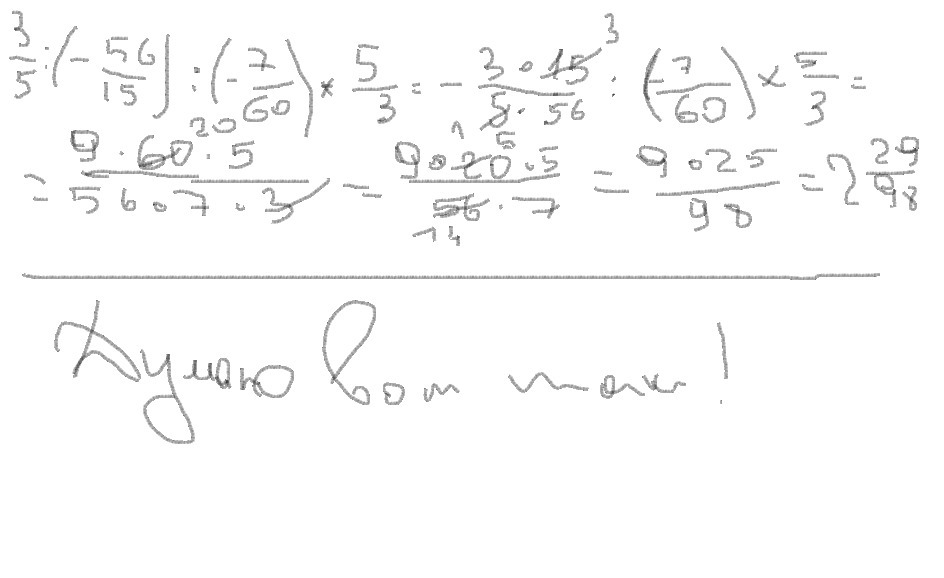 3/5 : (- 56/15) : (- 7/60) × 5/3 = - 3 · 15 3 / 5 · 56 : (- 7/60) × 5/3 =
= 9 · 60 20 · 5 / 56 · 7 · 3 = 9 · 20 5 · 5 / 56 14 · 7 = 9 · 25 / 98 = 2 29/98
Думаю вот так!